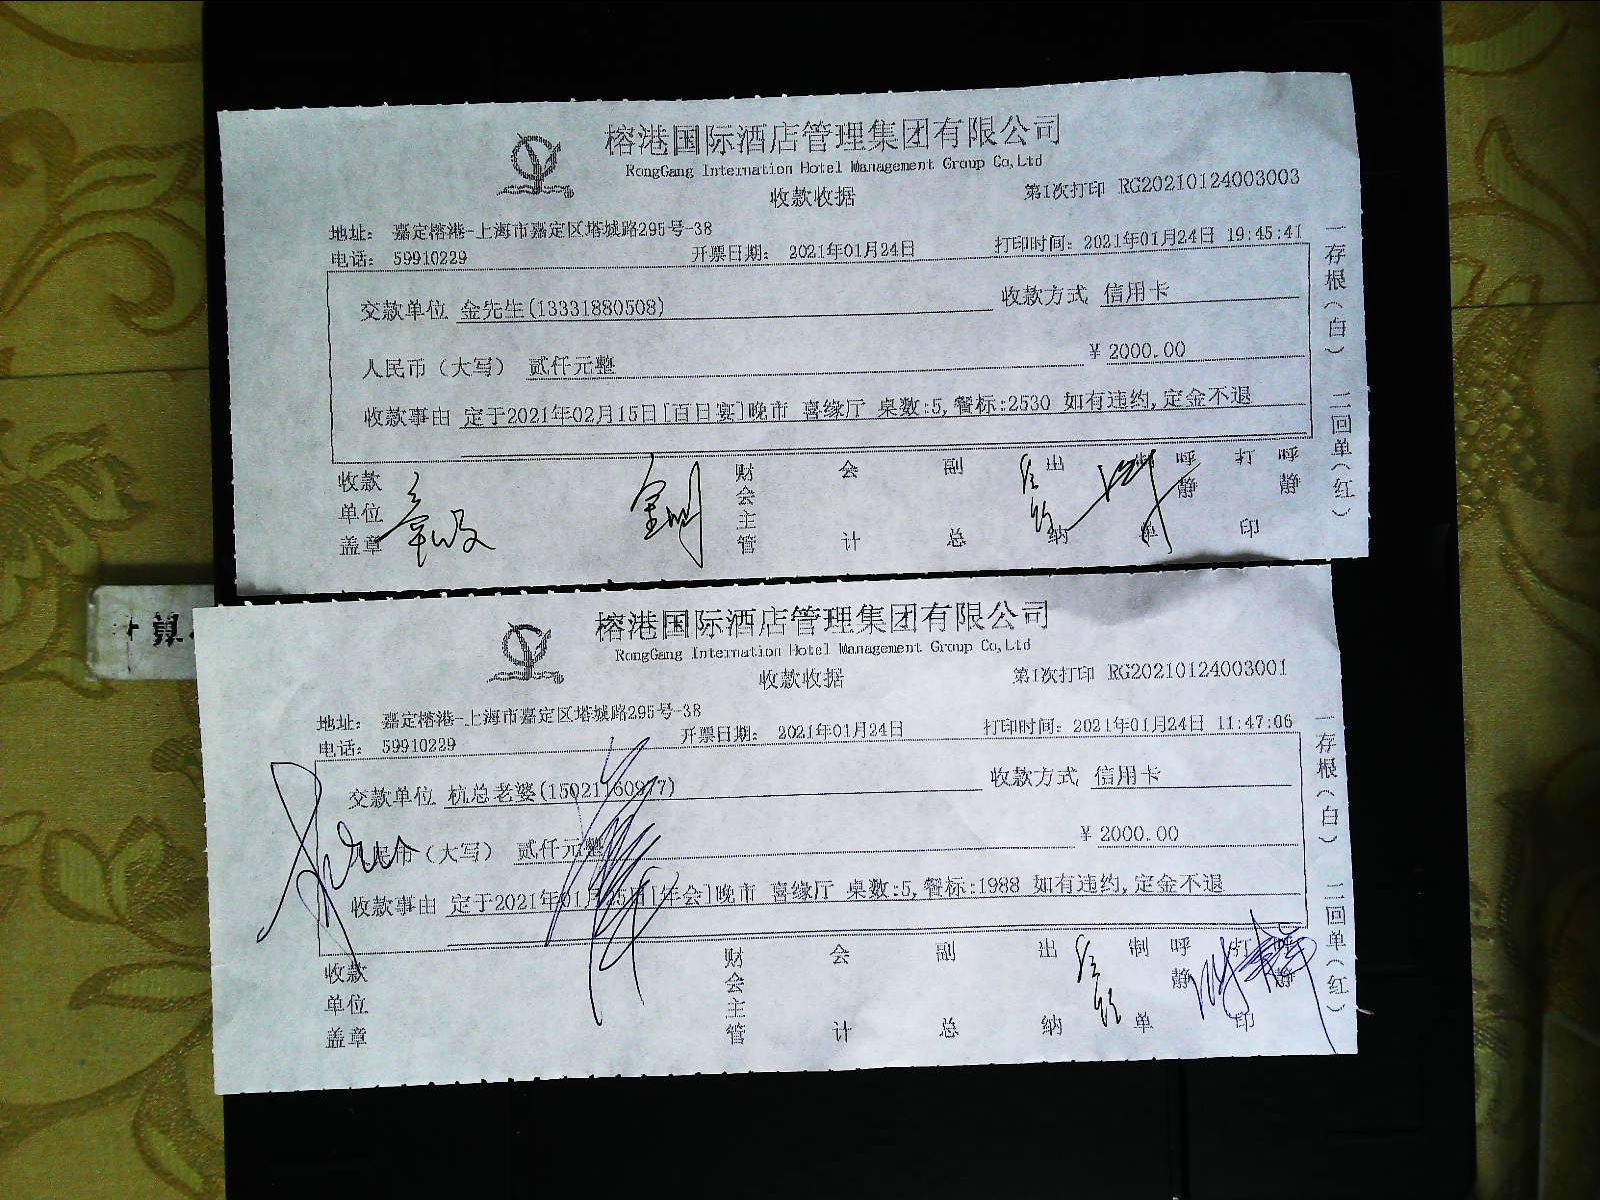 榕港国际酒店管理集团有限公司
RongGang Internation Hotel Management Group Co,Ltd
收款收据
第1次打印 RG20210124003003
地址: 嘉定榕港-上海市嘉定区塔城路295号-38
电话: 59910229
开票日期: 2021年01月24日
打印时间: 2021年01月24日 19:45:41
交款单位 金先生(13331880508)
收款方式 信用卡
人民币(大写) 贰仟元整
¥ 2000.00
收款事由 定于2021年02月15日[百日宴]晚市 喜缘厅 桌数:5,餐标:2530 如有违约,定金不退
收款单位盖章
财会主管
会计
副总
出纳
制单
呼静
打印
呼静
一存根(白) 二回单(红)
榕港国际酒店管理集团有限公司
RongGang Internation Hotel Management Group Co,Ltd
收款收据
第1次打印 RG20210124003001
地址: 嘉定榕港-上海市嘉定区塔城路295号-38
电话: 59910229
开票日期: 2021年01月24日
打印时间: 2021年01月24日 11:47:06
交款单位 杭总老婆(15021160977)
收款方式 信用卡
人民币(大写) 贰仟元整
¥ 2000.00
收款事由 定于2021年01月25日[年会]晚市 喜缘厅 桌数:5,餐标:1988 如有违约,定金不退
收款单位盖章
财会主管
会计
副总
出纳
制单
呼静
打印
呼静
一存根(白) 二回单(红)
计算